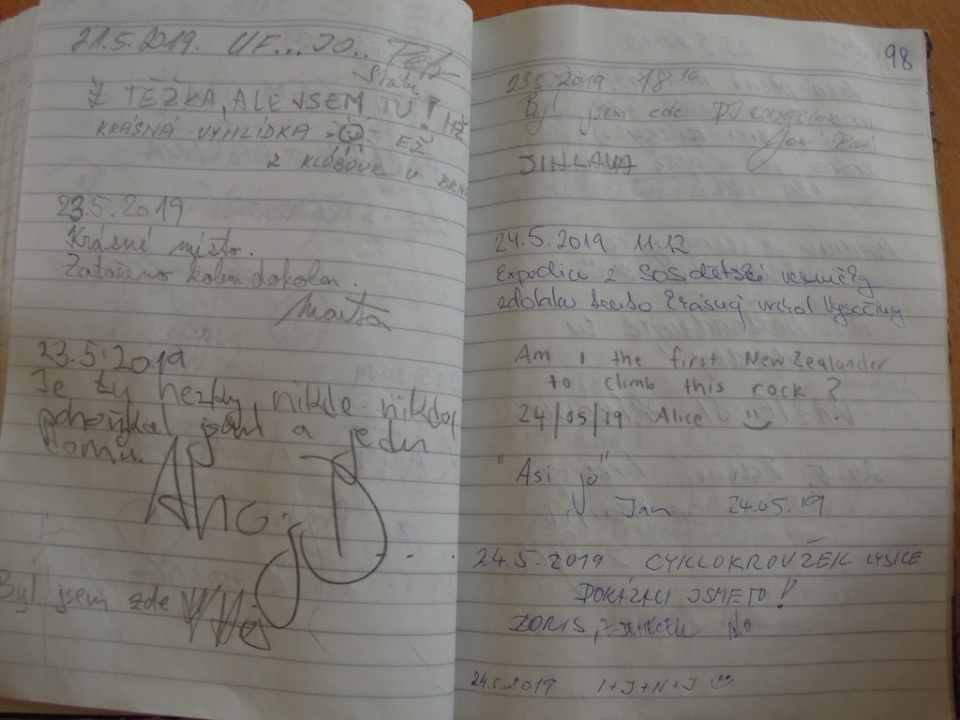 21.5.2019. UF... JO..
Z TĚŽKA, ALE JSEM TU!
KRÁSNÁ VÝHLÍDKA
Z KLOBOUK U BRNA
23.5.2019
Krásné místo.
Zataženo kolem dokola.
Marta
23.5.2019
Je tu hezky, nikde nikdo,
pohoužkal jsem a jedu
domů.
Ahoj
Byl jsem zde
98
23.5.2019 18.10
Byl jsem zde
JIHLAVA
24.5.2019 11.12
Expedice z SOS dětské vesničky
zdolala tento krásný vrchol Vysočiny.
Am I the first New Zealander
to climb this rock?
24/05/19 Alice
"Asi jo"
Jan 24.05.19
24.5.2019 CYKLOKROUŽEK LYSICE
DOKÁZALI JSME TO!
24.5.2019 I+J+N+J